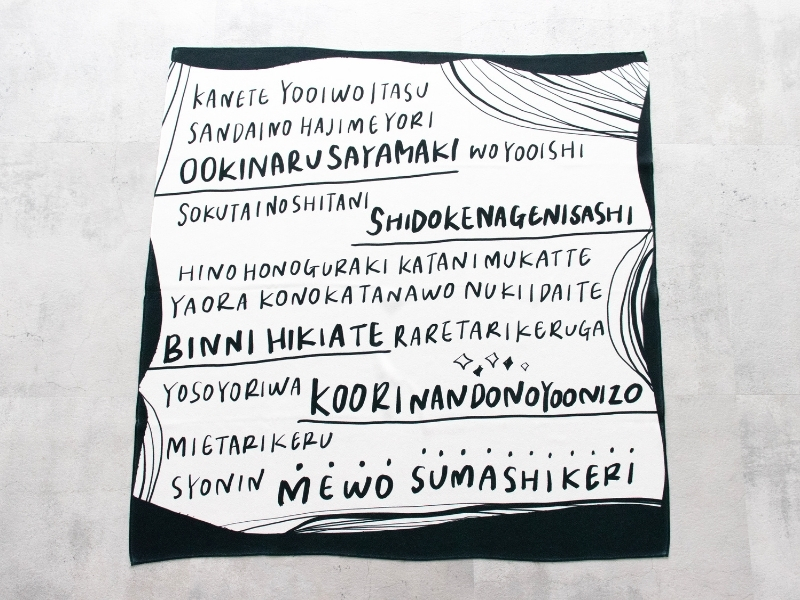 KANETE YOOIWOITASU
SANDAINO HAJIMEYORI
OOKINARUSAYAMAKI WOYOOISHI
SOKUTAINOSHITANI
SHIDOKENAGENISASHI
HINOHONOGURAKI KATANIMUKATTE
YAORA KONOKATANAWO NUKIIDAITE
BINNI HIKIATE RARETARIKERUGA
YOSOYORIWA KOORINANDONOYOONIZO
MIETARIKERU
SYONIN MEWO SUMASHIKERI